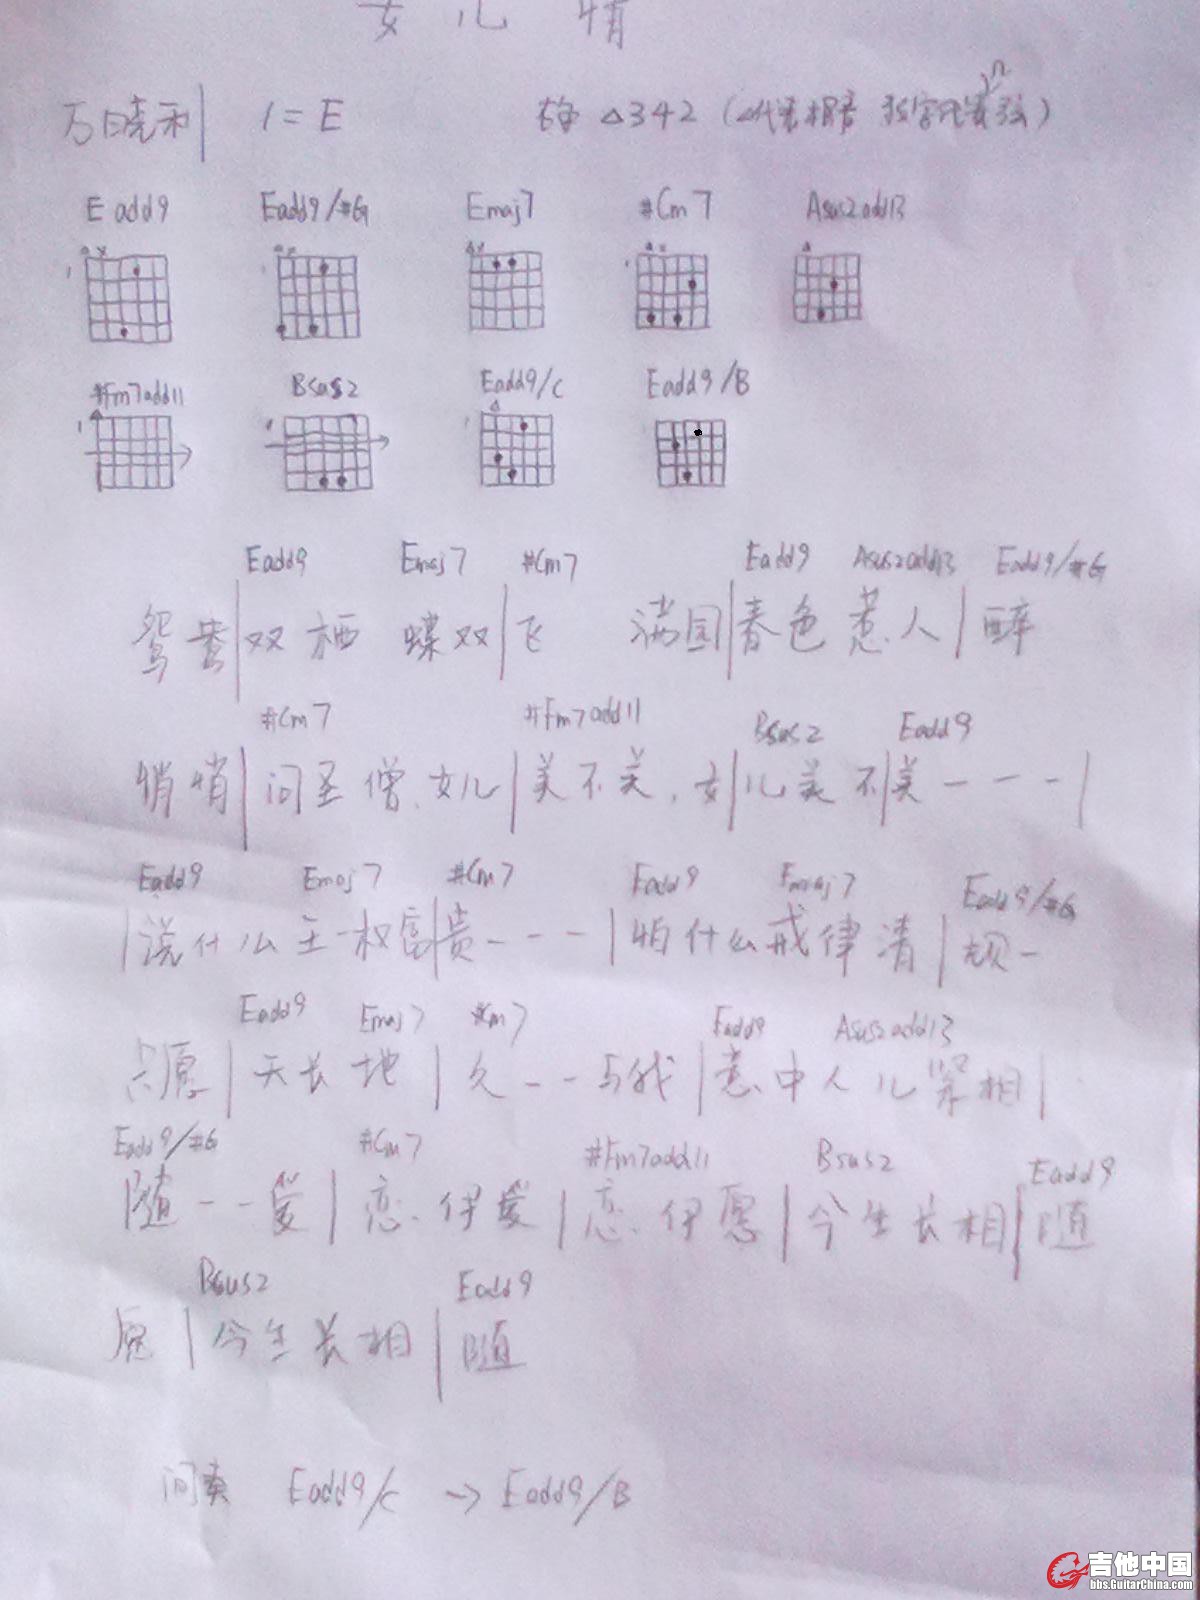 女儿情
万晓利 1=E 右手 △342 (△代表根音 数字代表几弦)
Eadd9 Eadd9/#G Emaj7 #Cm7 Asus2add13
△ x △ x △ x △ x △
1
#Fm7add11 Bsus2 Eadd9/C Eadd9/B
1 △
Eadd9 Emaj7 #Cm7 Eadd9 Asus2add13 Eadd9/#G
鸳鸯|双栖 蝶双|飞 满园|春色惹人|醉
#Cm7 #Fm7add11 Bsus2 Eadd9
悄悄|问圣僧,女儿|美不美,女|儿美不|美---|
Eadd9 Emaj7 #Cm7 Eadd9 Emaj7 Eadd9/#G
|说什么王权富|贵---|怕什么戒律清|规-
Eadd9 Emaj7 #Cm7 Eadd9 Asus2add13
只愿|天长地|久--与我|意中人儿紧相|
Eadd9/#G #Cm7 #Fm7add11 Bsus2 Eadd9
随--爱|恋.伊爱|恋.伊愿|今生长相|随
Bsus2 Eadd9
愿|今生长相|随
间奏 Eadd9/C → Eadd9/B
吉他中国
bbs.GuitarChina.com